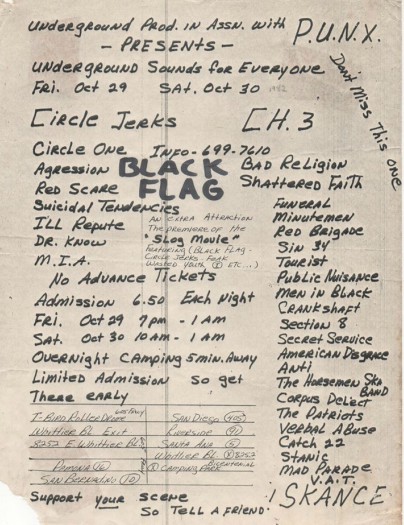 Underground Prod. in Assn. with P.U.N.X.
- PRESENTS -
Underground Sounds for Everyone
Don't Miss This one
Fri. Oct 29 Sat. Oct 30 1982
Circle Jerks
CH.3
Circle One Info-699-7610
Agression
BLACK FLAG
Bad Religion
Red Scare
Shattered Faith
Suicidal Tendencies
Ill Repute
Dr. Know
M.I.A.
An extra Attraction
The premiere of the
"Slog Movie"
Featuring (Black Flag-
Circle Jerks-Fear
Wasted Youth (etc...)
Funeral
Minutemen
Red Brigade
Sin 34
Tourist
Public Nuisance
Men in Black
Crankshaft
Section 8
Secret Service
American Disgrace
Anti
The Horsemen Ska Band
Corpus Delect
The Patriots
Verbal Abuse
Catch 22
Stanic
Mad Parade
V.A.T.
! SKANCE
No Advance Tickets
Admission 6.50 Each Night
Fri. Oct 29 7pm - 1am
Sat. Oct 30 10am - 1am
Overnight Camping 5 min. Away
Limited Admission So get
There early
T-Bird Roller Drome
Whittier Bl. Exit
8252 E. Whittier Bl.
Pomona
San Bernadno (10)
San Diego (405)
Riverside (91)
Santa Ana (5)
Whittier Bl.
Camping Park
Bicentennial
Support your scene
So Tell A friend